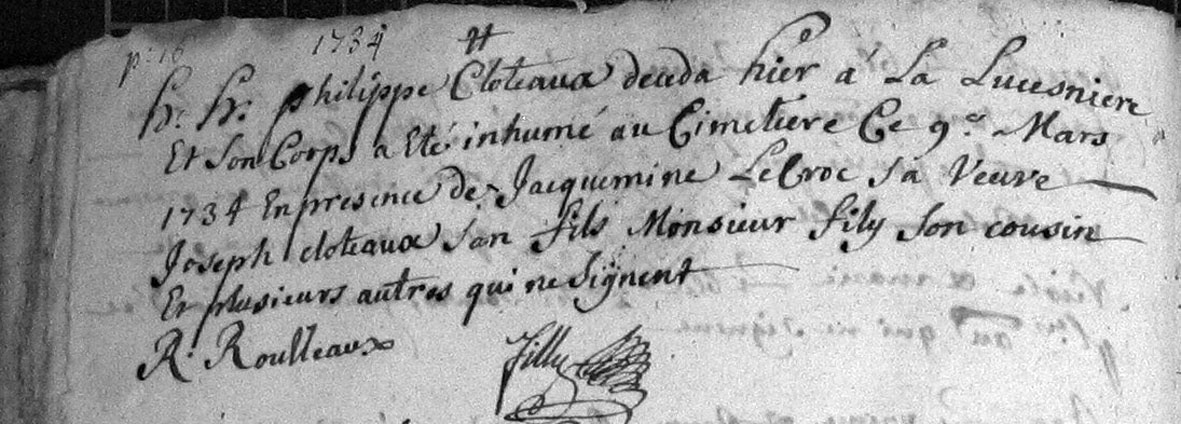 p: 16 1734
h. h. philippe Cloteaux deceda hier a La Lucesniere
Et Son Corps a Eté inhumé au Cimetiere Ce 9e Mars
1734 En presence de Jacquemine LeCroc Sa Veuve
Joseph cloteaux Son fils Monsieur fily Son cousin
Et plusieurs autres qui ne Signent
R. Roulleaux filly